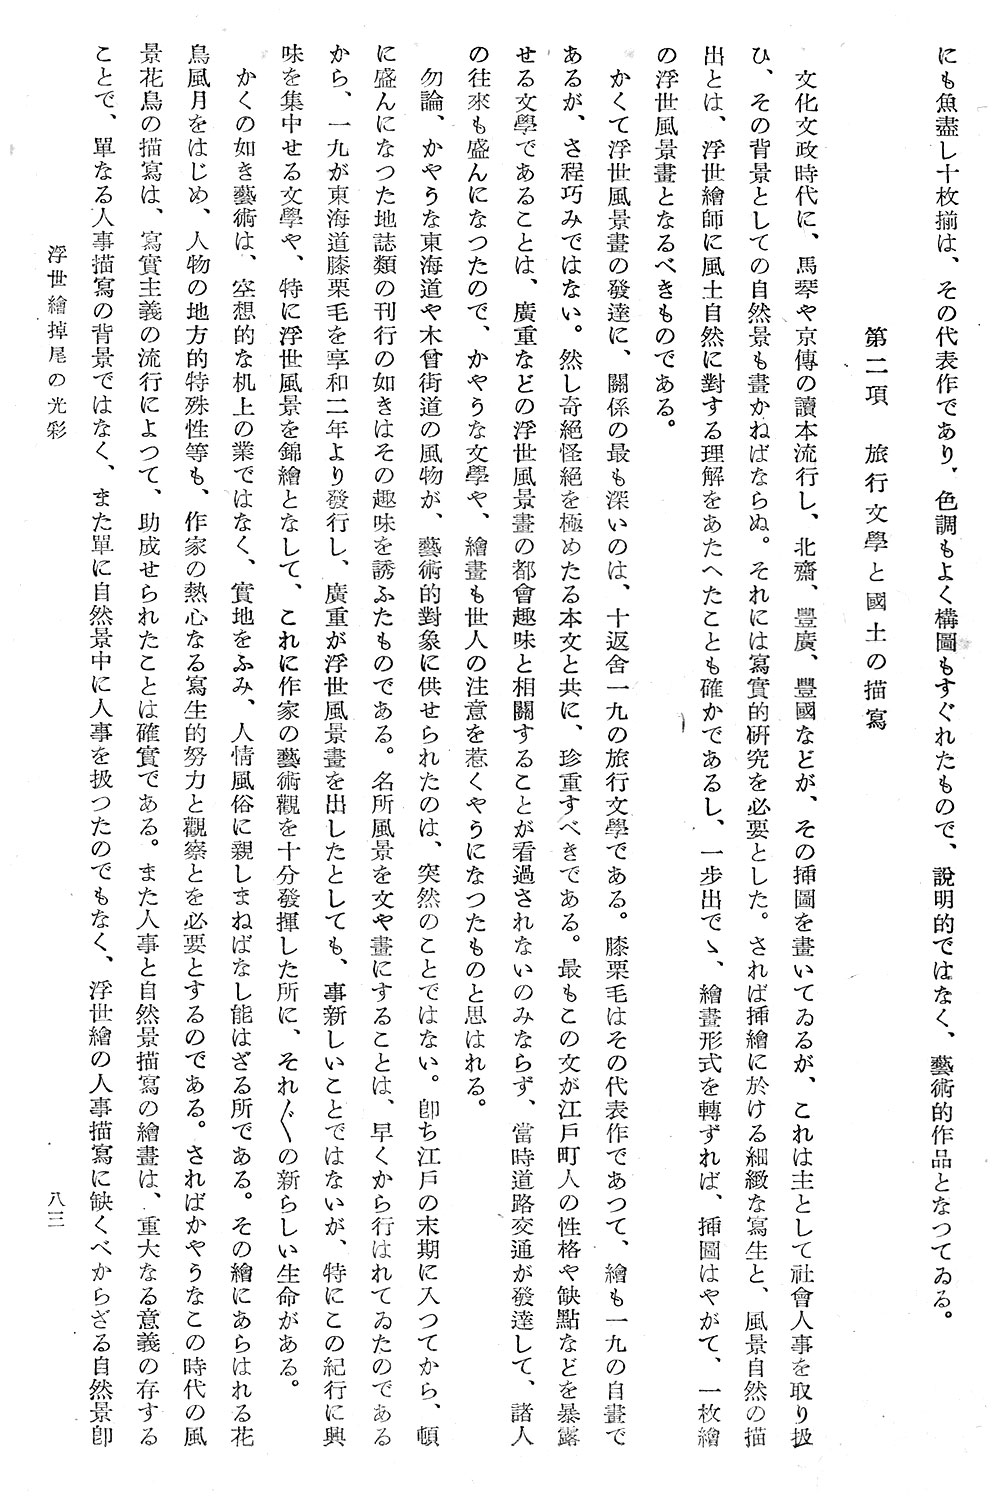 にも魚盡し十枚揃は、その代表作であり、色調もよく構圖もすぐれたもので、說明的ではなく、藝術的作品となつてゐる。
第二項　旅行文學と國土の描寫
文化文政時代に、馬琴や京傳の讀本流行し、北齋、豐廣、豐國などが、その挿圖を畫いてゐるが、これは主として社會人事を取り扱
ひ、その背景としての自然景も畫かねばならぬ。それには寫實的硏究を必要とした。されば挿繪に於ける細緻な寫生と、風景自然の描
出とは、浮世繪師に風土自然に對する理解をあたへたことも確かであるし、一步出でゝ、繪畫形式を轉ずれば、挿圖はやがて、一枚繪
の浮世風景畫となるべきものである。
かくて浮世風景畫の發達に、關係の最も深いのは、十返舍一九の旅行文學である。膝栗毛はその代表作であつて、繪も一九の自畫で
あるが、さ程巧みではない。然し奇絕怪絕を極めたる本文と共に、珍重すべきである。最もこの文が江戶町人の性格や缺點などを暴露
せる文學であることは、廣重などの浮世風景畫の都會趣味と相關することが看過されないのみならず、當時道路交通が發達して、諸人
の往來も盛んになつたので、かやうな文學や、繪畫も世人の注意を惹くやうになつたものと思はれる。
勿論、かやうな東海道や木曾街道の風物が、藝術的對象に供せられたのは、突然のことではない。卽ち江戶の末期に入つてから、頓
に盛んになつた地誌類の刊行の如きはその趣味を誘ふたものである。名所風景を文や畫にすることは、早くから行はれてゐたのである
から、一九が東海道膝栗毛を享和二年より發行し、廣重が浮世風景畫を出したとしても、事新しいことではないが、特にこの紀行に興
味を集中せる文學や、特に浮世風景を錦繪となして、これに作家の藝術觀を十分發揮した所に、それ〴〵の新らしい生命がある。
かくの如き藝術は、空想的な机上の業ではなく、實地をふみ、人情風俗に親しまねばなし能はざる所である。その繪にあらはれる花
鳥風月をはじめ、人物の地方的特殊性等も、作家の熱心なる寫生的努力と觀察とを必要とするのである。さればかやうなこの時代の風
景花鳥の描寫は、寫實主義の流行によつて、助成せられたことは確實である。また人事と自然景描寫の繪畫は、重大なる意義の存する
ことで、單なる人事描寫の背景ではなく、また單に自然景中に人事を扱つたのでもなく、浮世繪の人事描寫に缺くべからざる自然景卽
浮世繪掉尾の光彩
八三